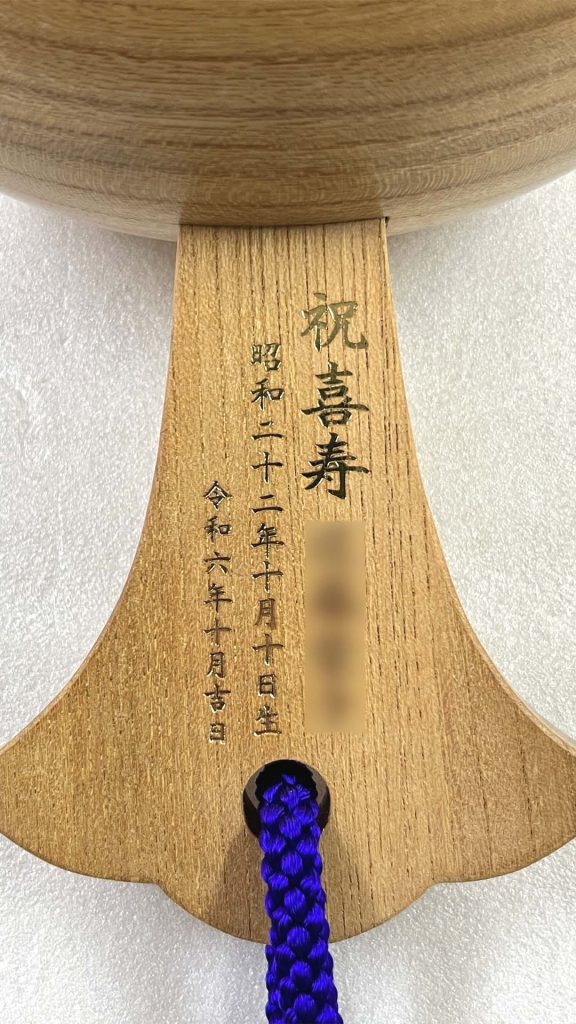 祝喜寿
昭和二十二年十月十日生
令和六年十月吉日